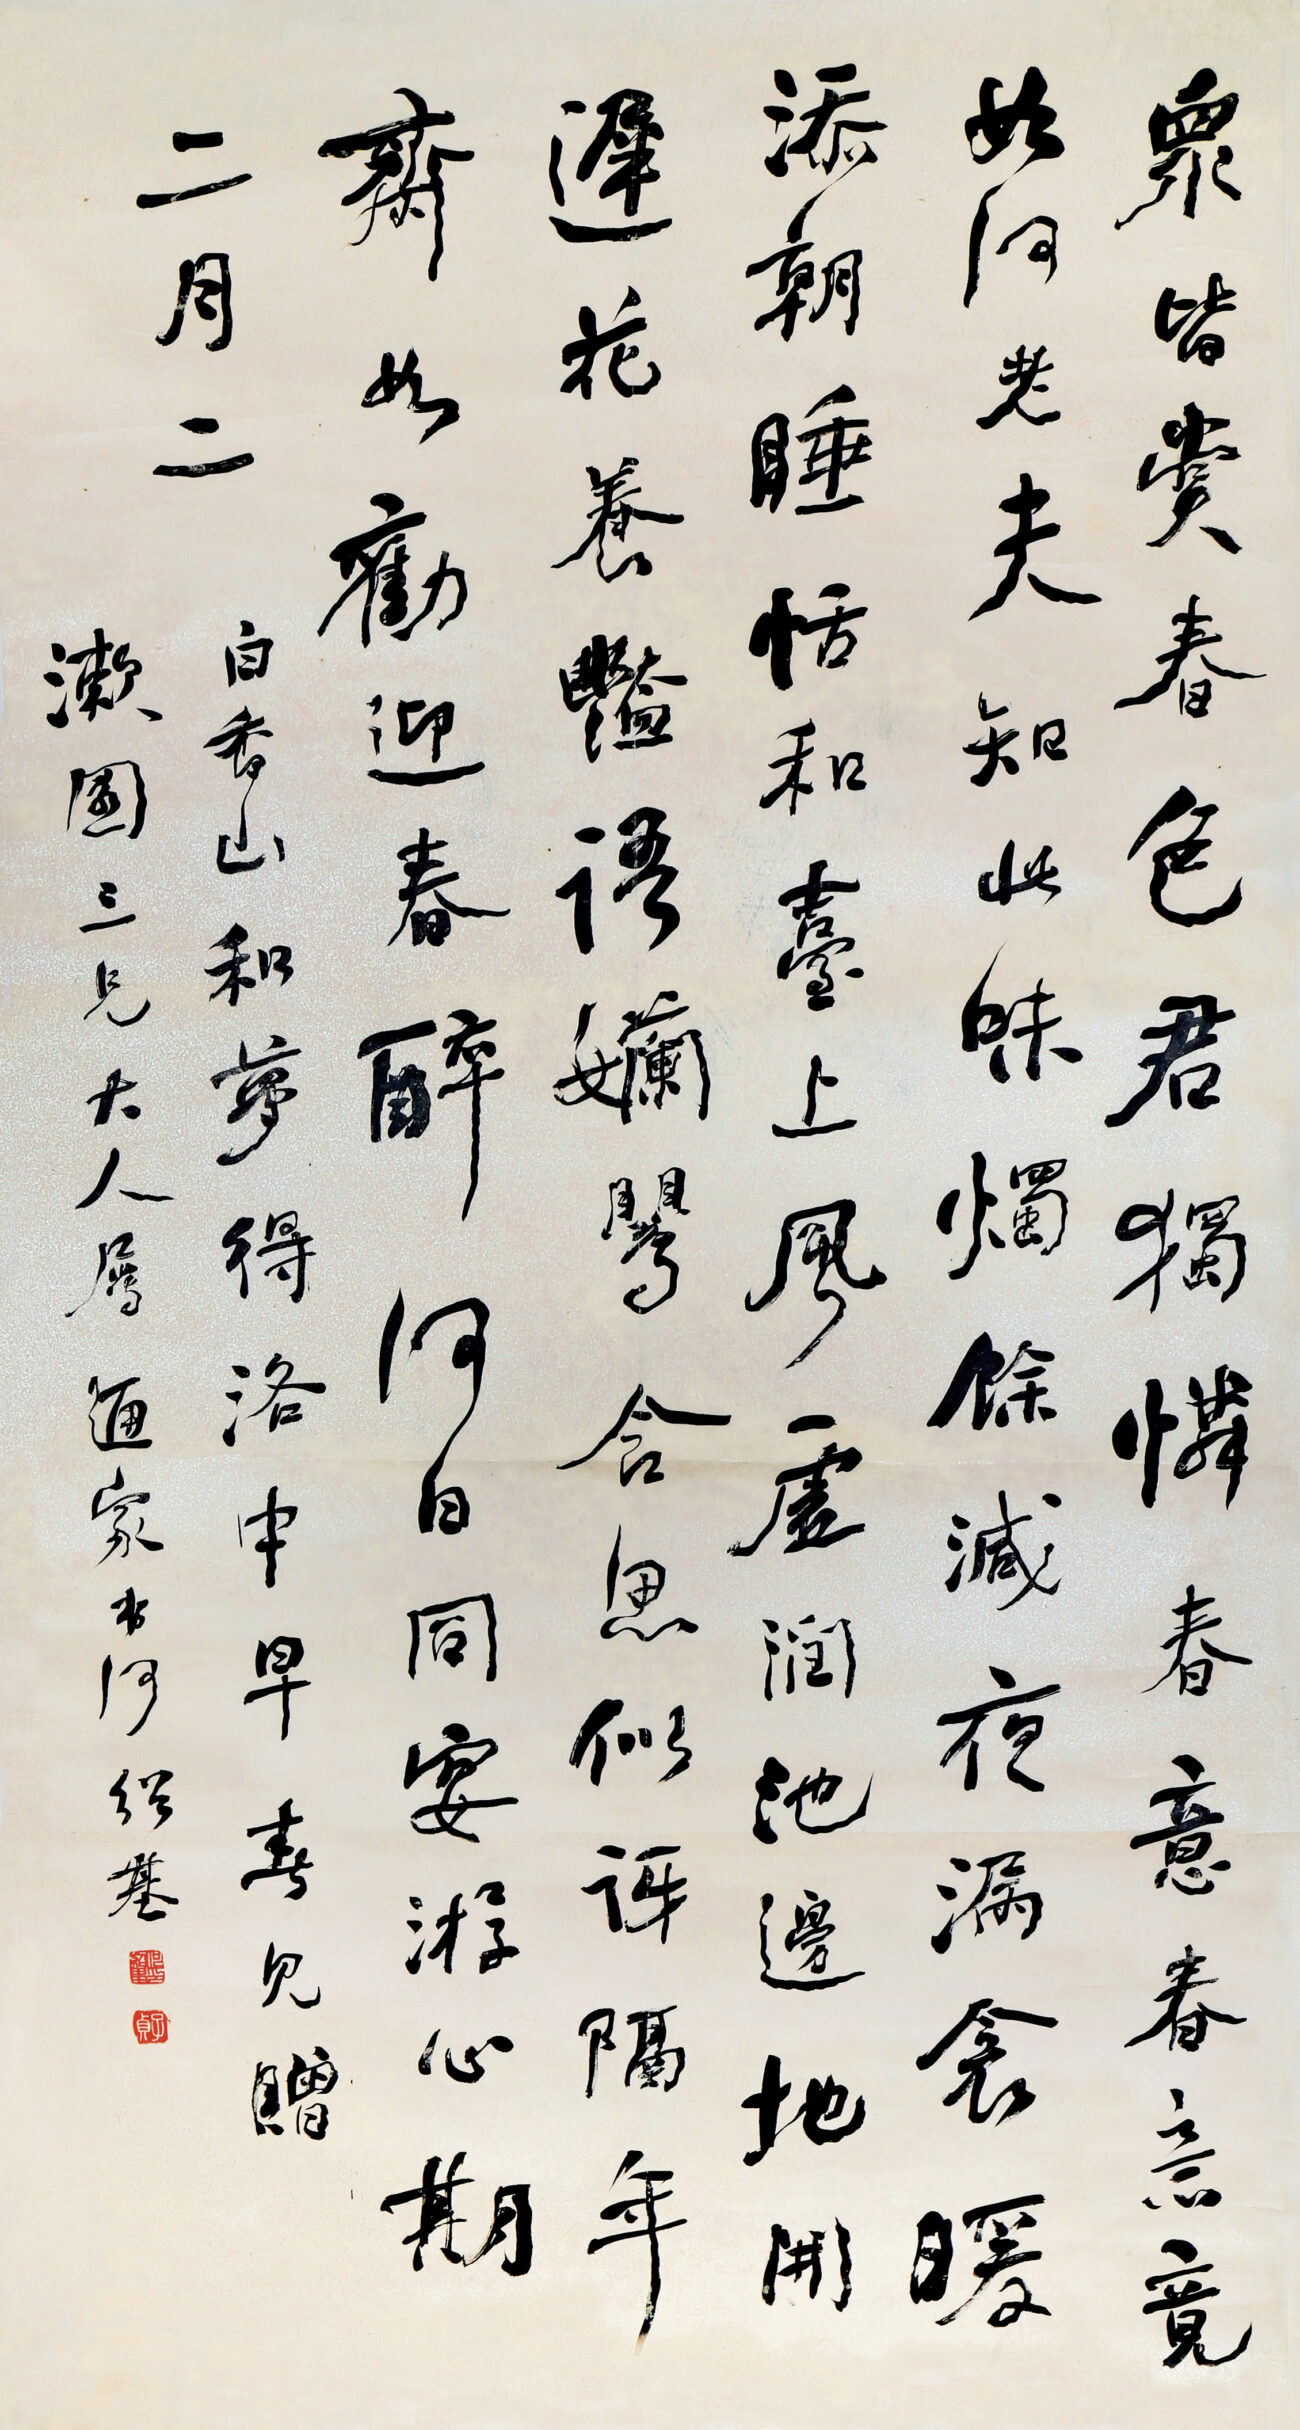 眾皆賞春色君獨憐春意春意竟
如何老夫知此味燭餘減夜漏衾暖
添朝睡恬和臺上風虛潤池邊地開
遲花養豔語嬾鶯含思似訝隔年
齋如勸迎春醉何日同宴游心期
二月二
白香山和夢得洛中早春見贈
漱園三兄大人屬通家弟何紹基
子貞